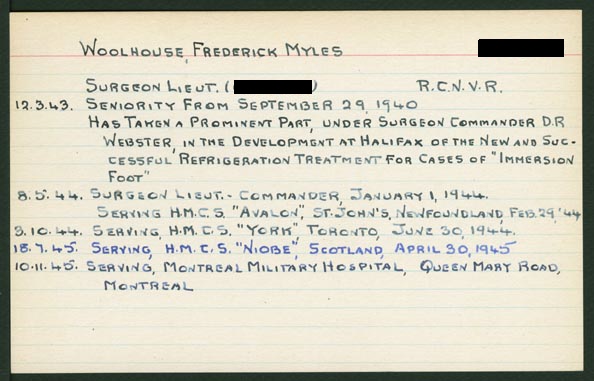 WOOLHOUSE, FREDERICK MYLES
SURGEON LIEUT. ( ) R.C.N.V.R.
12.3.43. SENIORITY FROM SEPTEMBER 29, 1940
HAS TAKEN A PROMINENT PART, UNDER SURGEON COMMANDER D.R
WEBSTER, IN THE DEVELOPMENT AT HALIFAX OF THE NEW AND SUC-
CESSFUL REFRIGERATION TREATMENT FOR CASES OF "IMMERSION
FOOT"
8.5.44. SURGEON LIEUT.- COMMANDER, JANUARY 1, 1944.
SERVING H.M.C.S. "AVALON", ST. JOHN'S, NEWFOUNDLAND, FEB. 29, '44
3.10.44. SERVING, H.M.C.S. "YORK" TORONTO, JUNE 30, 1944.
18.7.45. SERVING, H.M.C.S. "NIOBE", SCOTLAND, APRIL 30, 1945
10.11.45. SERVING, MONTREAL MILITARY HOSPITAL, QUEEN MARY ROAD,
MONTREAL